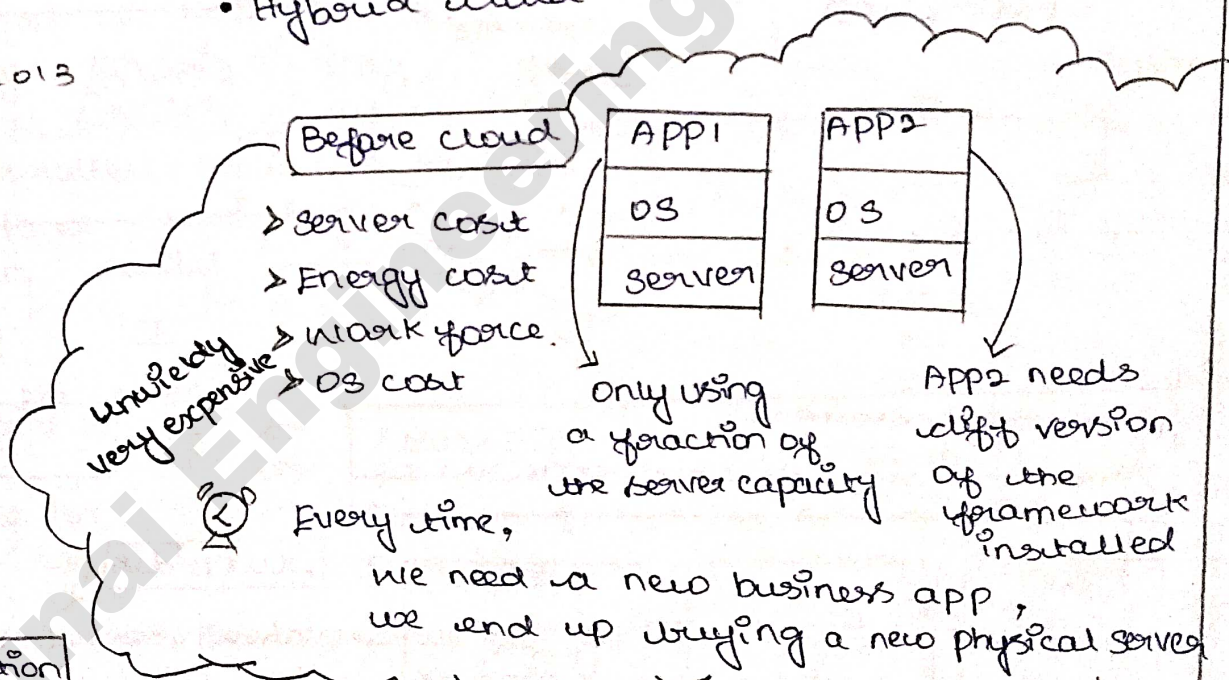 • Hybrid
013
Before cloud
APP1
OS
server
APP2
OS
server
> server cost
> Energy cost
> work force.
> OS cost
unwieldy
very expensive
only using
a fraction of
the server capacity
APP2 needs
diff version
of the
framework
installed
Every time,
we need a new business app,
we end up buying a new physical server
tion
nai Engineering